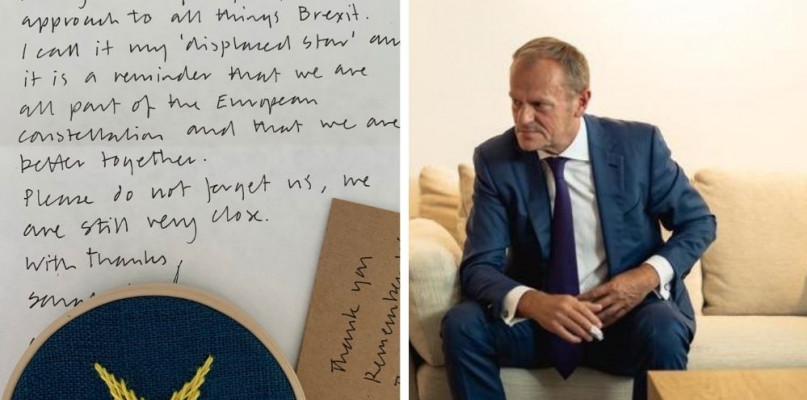 approach to all things Brexit.
I call it my 'displaced star' an
it is a reminder that we are
all part of the European
constellation and that we are
better together.
Please do not forget us, we
are still very close.
With thanks,
Thank you
Remember